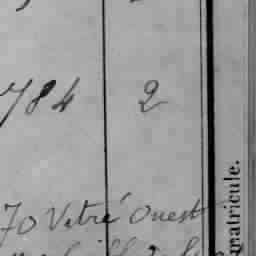 784 2
70 Vitré Ouest
matricule.